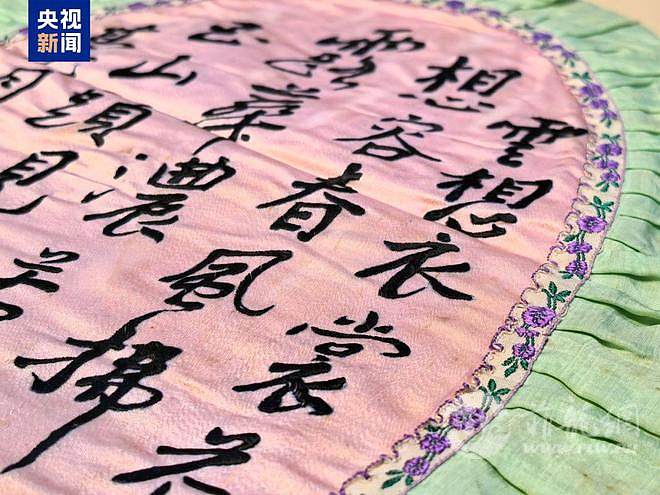 雲想衣裳花
想容春風拂
露華濃若
玉山頭見
月
央视
新闻